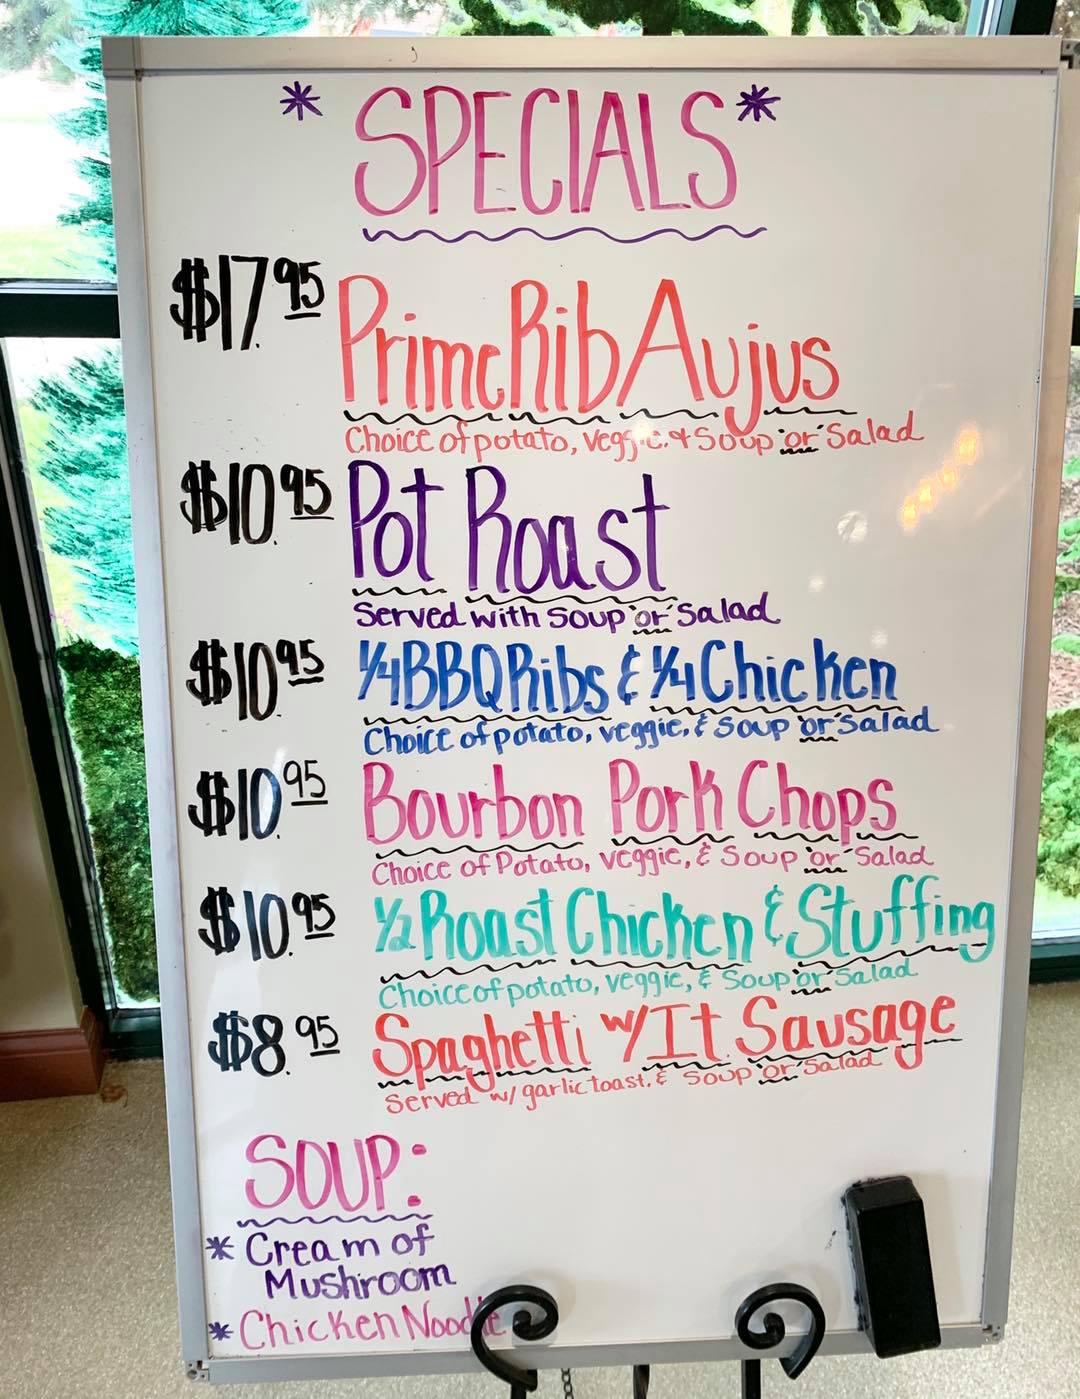 * SPECIALS *
$17.95 Prime Rib Aujus
Choice of potato, veggie, & Soup "or" Salad
$10.95 Pot Roast
Served with Soup "or" Salad
$10.95 1/4 BBQ Ribs & 1/4 Chicken
Choice of potato, veggie, & Soup "or" Salad
$10.95 Bourbon Pork Chops
Choice of Potato, veggie, & Soup "or" Salad
$10.95 1/2 Roast Chicken & Stuffing
Choice of potato, veggie, & Soup "or" Salad
$8.95 Spaghetti w/ It. Sausage
Served w/ garlic toast, & Soup "or" Salad
SOUP:
* Cream of
Mushroom
* Chicken Noodle